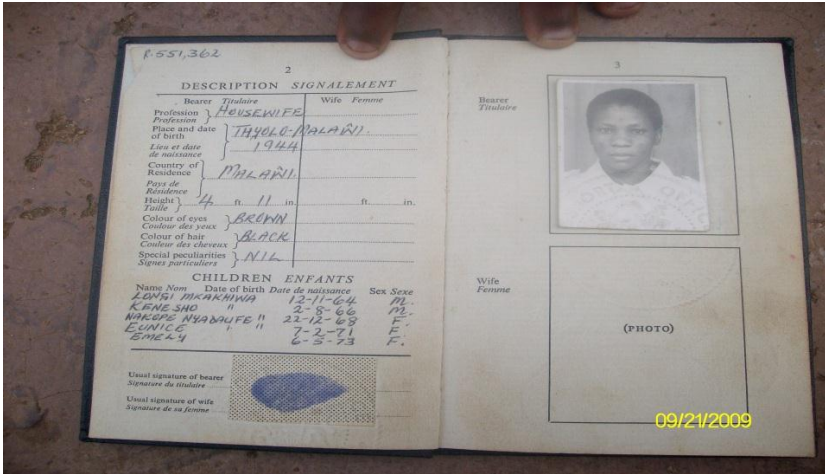 R.551,362
2
DESCRIPTION SIGNALEMENT
Bearer Titulaire Wife Femme
Profession Profession } HOUSEWIFE
Place and date of birth Lieu et date de naissance } THYOLO-MALAŴI.
1944
Country of Residence Pays de Résidence } MALAŴI.
Height Taille } 4 ft. 11 in. ft. in.
Colour of eyes Couleur des yeux } BROWN
Colour of hair Couleur des cheveux } BLACK
Special peculiarities Signes particuliers } NIL
CHILDREN ENFANTS
Name Nom Date of birth Date de naissance Sex Sexe
MKAKHIWA 12-11-64 M.
KENESHO " 2-8-66 M.
" 22-12-68 F.
EUNICE " " 7-2-71 F
EMELY 6-5-73 F.
Usual signature of bearer
Signature du titulaire
Usual signature of wife
Signature de sa femme
3
Bearer
Titulaire
Wife
Femme
(PHOTO)
09/21/2009